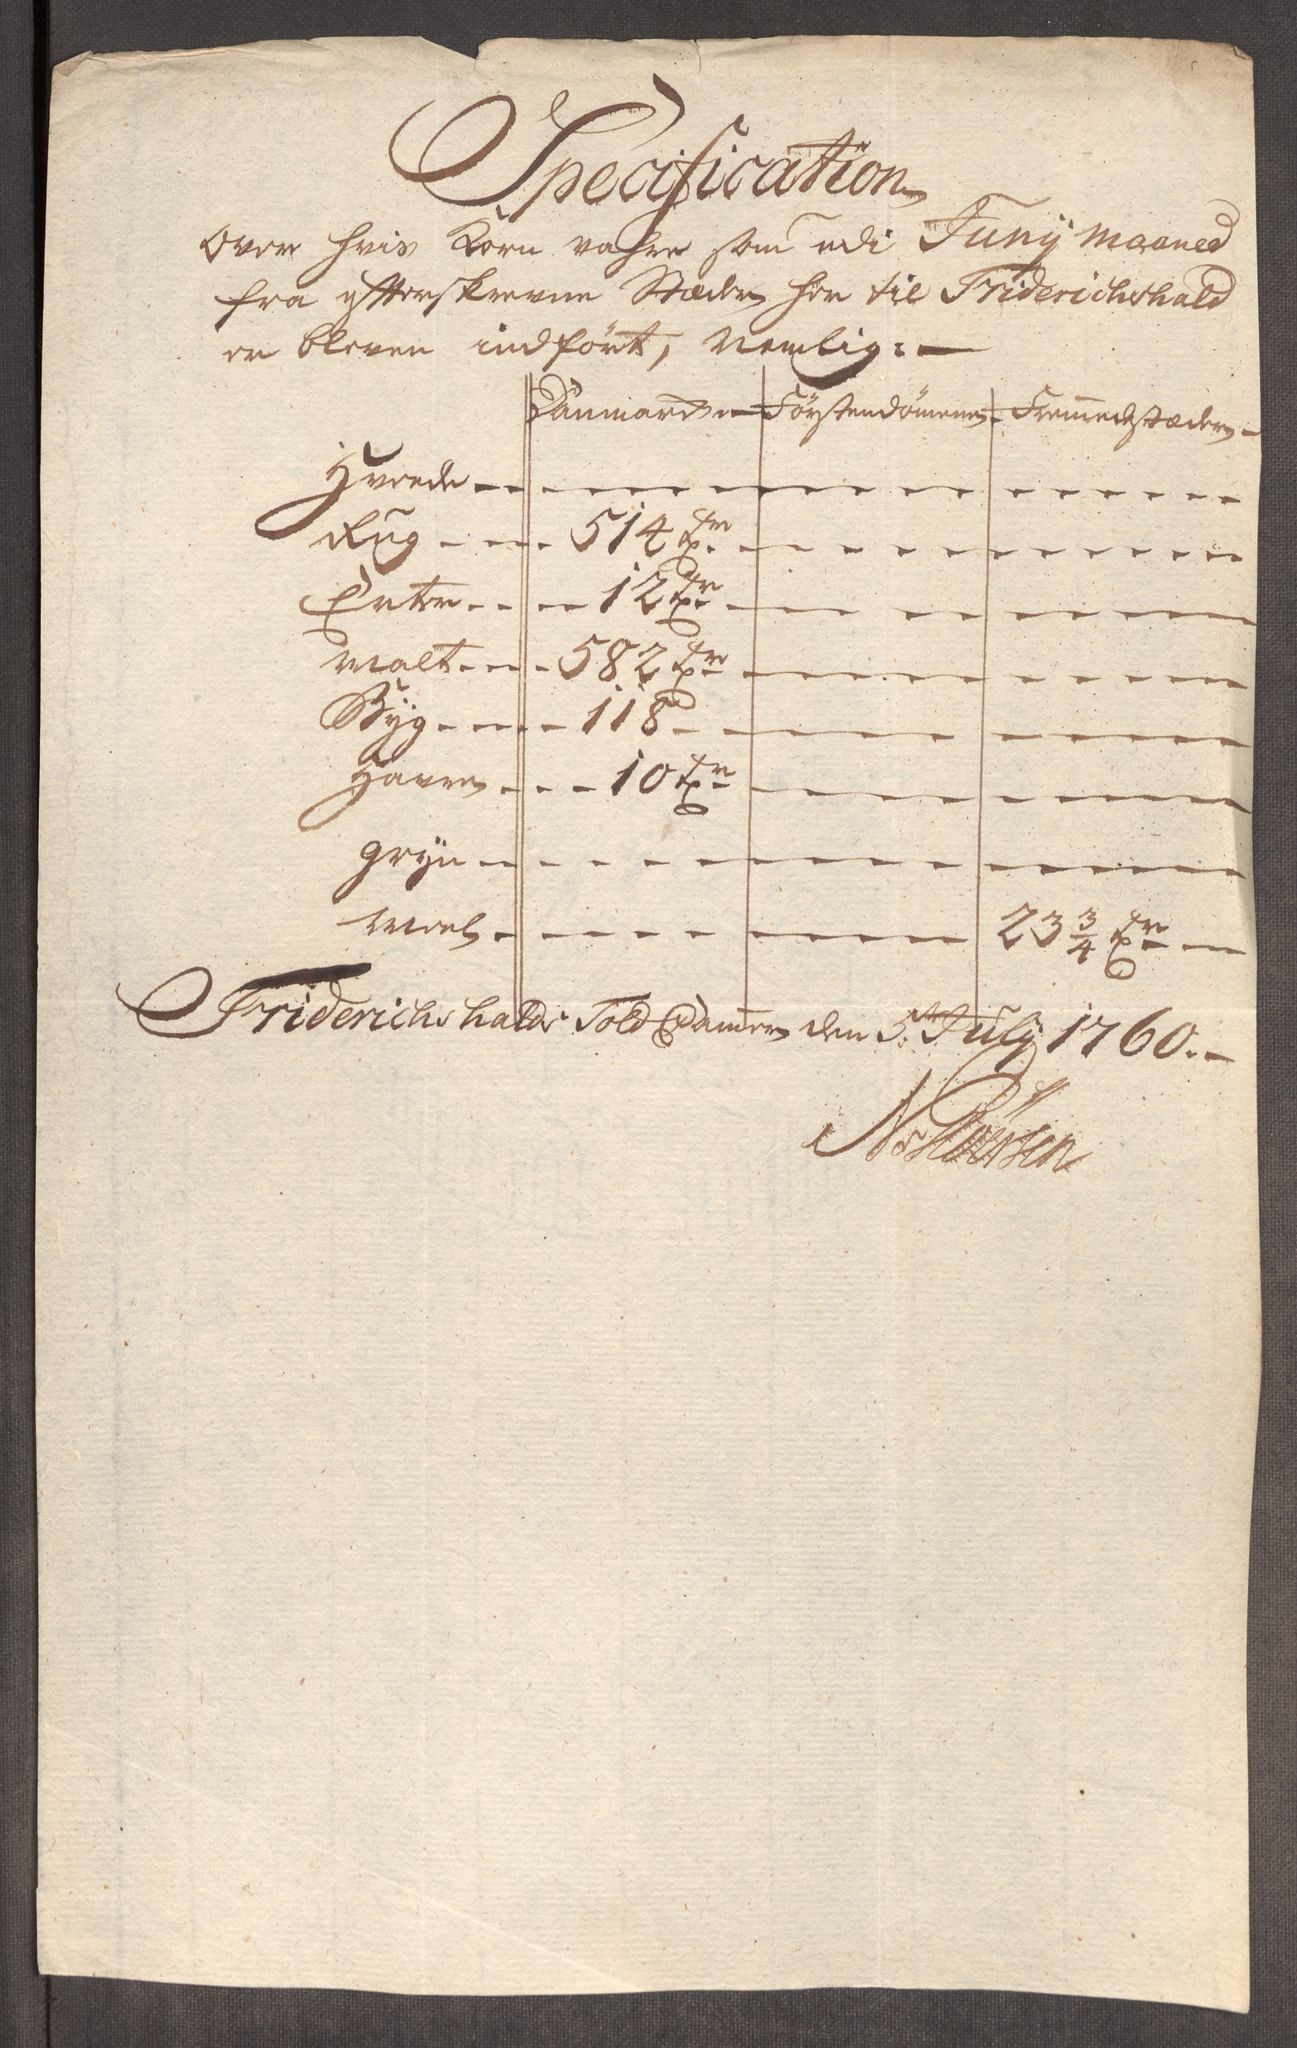 Specification
Over hvis Korn vahre som udi Junÿ Maaned
fra ÿtterskrevne Stæder her til Friderichshald
er bleven indført, Nemlig:
Danmark Førstendømene Fremmedstæder
Hvede
Rug 514 Tr
Erter 12 Tr
Malt 582 Tr
Byg 118
Havre 10 Tr
Grÿn
Meel 23 3/4 Tr
Friderichshalds Told Cammer den 5. July 1760.